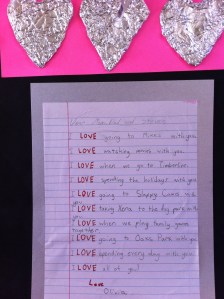 I LOVE going to Mimis with you.
I LOVE watching movies with you.
I LOVE when we go to
I LOVE spending the holidays with you.
I LOVE going to Sloppy with
you.
I LOVE taking to the dog park with
you.
I LOVE when we play family games
together.
I LOVE going to with you.
I LOVE spending every day with you.
I LOVE all of you!
Love
Olivia